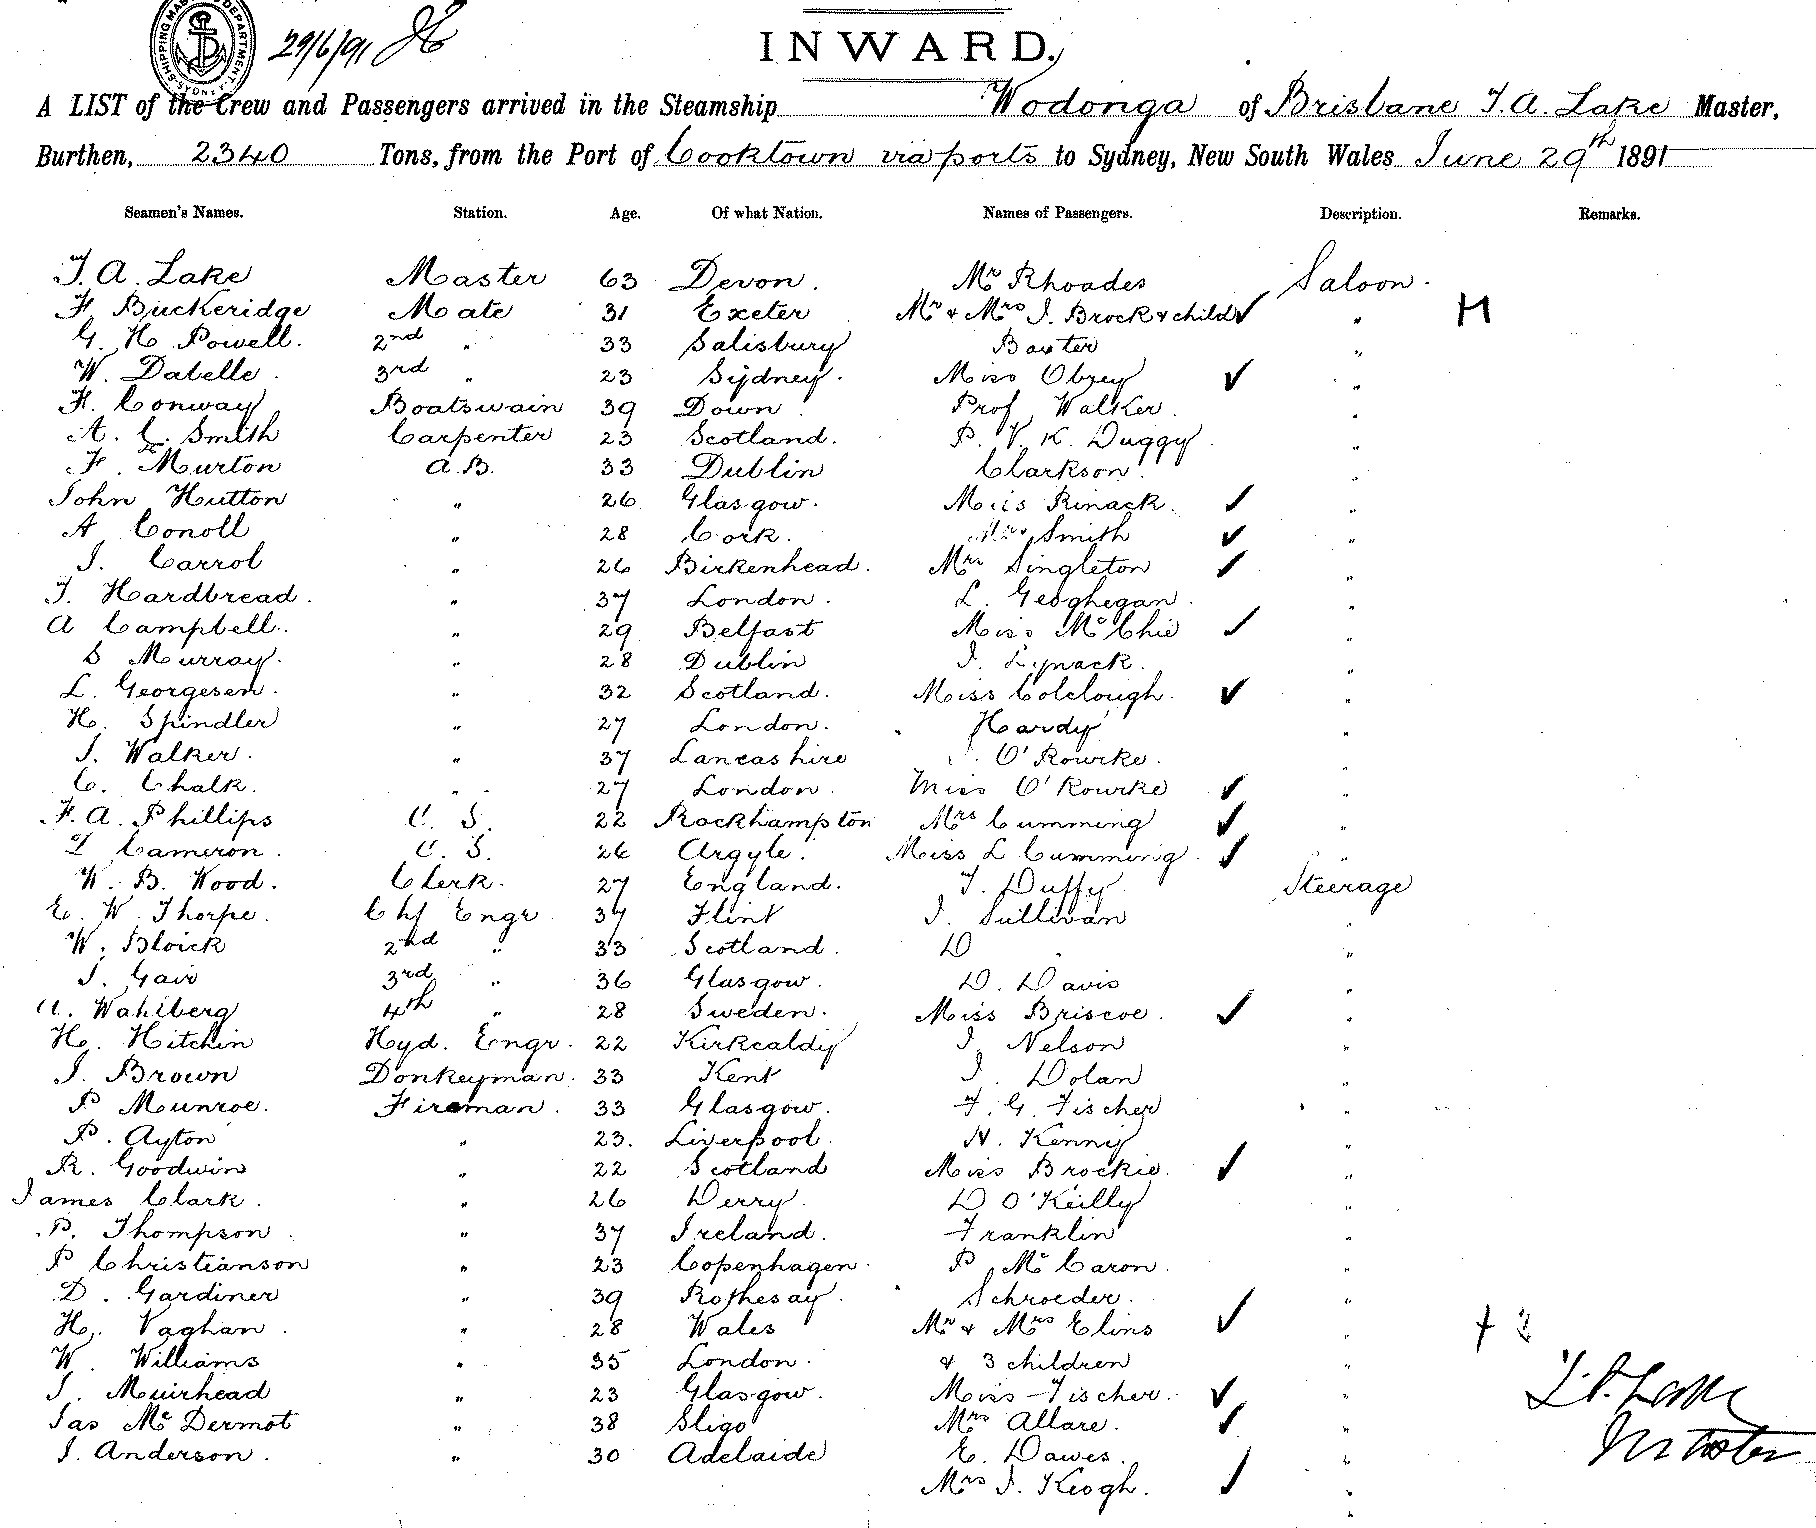 SHIPPING MASTER'S DEPARTMENT SYDNEY
29/6/91
INWARD.
A LIST of the Crew and Passengers arrived in the Steamship Wodonga of Brisbane T. A. Lake Master,
Burthen, 2340 Tons, from the Port of Cooktown via ports to Sydney, New South Wales June 29th 1891
Seamen's Names. Station. Age. Of what Nation. Names of Passengers. Description. Remarks.
T. A. Lake Master 63 Devon. Mr Rhoades Saloon.
F Buckeridge Mate 31 Exeter Mr & Mrs J. Brock & child ✓ " H
G. H Powell. 2nd " 33 Salisbury Baxter "
W. Dabelle. 3rd " 23 Sydney. Miss Obrey ✓ "
F. Conway Boatswain 39 Down. Prof Walker. "
A. C. Smith Carpenter 23 Scotland. P. V. K. Duggy. "
F. Murton A.B. 33 Dublin Clarkson. "
John Hutton " 26 Glasgow. Miss Rinack. ✓ "
A Conoll " 28 Cork. Mrs Smith ✓ "
J. Carrol " 26 Birkenhead. Mrs Singleton ✓ "
T. Hardbread. " 37 London. L. Geoghegan. "
A Campbell. " 29 Belfast Miss McChie ✓ "
S Murray. " 28 Dublin J. Lynack. "
L. Georgesen. " 32 Scotland. Miss Colclough. ✓ "
H. Spindler " 27 London. Hardy "
J. Walker. " 37 Lancashire O'Rourke. "
C. Chalk. " 27 London. Miss O'Rourke ✓ "
F. A. Phillips O. S. 22 Rockhampton Mrs Cumming ✓ "
T Cameron. O. S. 26 Argyle. Miss L Cumming. ✓ "
W. B. Wood. Clerk. 27 England. T. Duffy. Steerage
E. W. Thorpe. Chf Engr. 37 Flint J. Sullivan "
W. Bloick 2nd " 33 Scotland. D "
J. Gair 3rd " 36 Glasgow. D. Davis "
A. Wahlberg 4th " 28 Sweden. Miss Briscoe. ✓ "
H. Hitchin Hyd. Engr. 22 Kirkcaldy J. Nelson "
J. Brown Donkeyman. 33 Kent J. Dolan "
P Munroe. Fireman. 33 Glasgow. F. G. Fischer "
P. Ayton " 23. Liverpool. N. Kenny "
R. Goodwin " 22 Scotland Miss Brockie. ✓ "
James Clark. " 26 Derry. D O'Reilly "
P. Thompson. " 37 Ireland. Franklin "
P Christianson " 23 Copenhagen. P McCaron. "
D. Gardiner " 39 Rothesay. Schroeder. "
H. Vaghan. " 28 Wales Mr & Mrs Elins ✓ "
W. Williams " 35 London. & 3 children "
J. Muirhead " 23 Glasgow. Miss Fischer. ✓ "
Jas McDermot " 38 Sligo Mrs Allare. ✓ "
J. Anderson. " 30 Adelaide E. Dawes. "
Mrs J. Keogh. ✓ "
T. A. Lake
Master